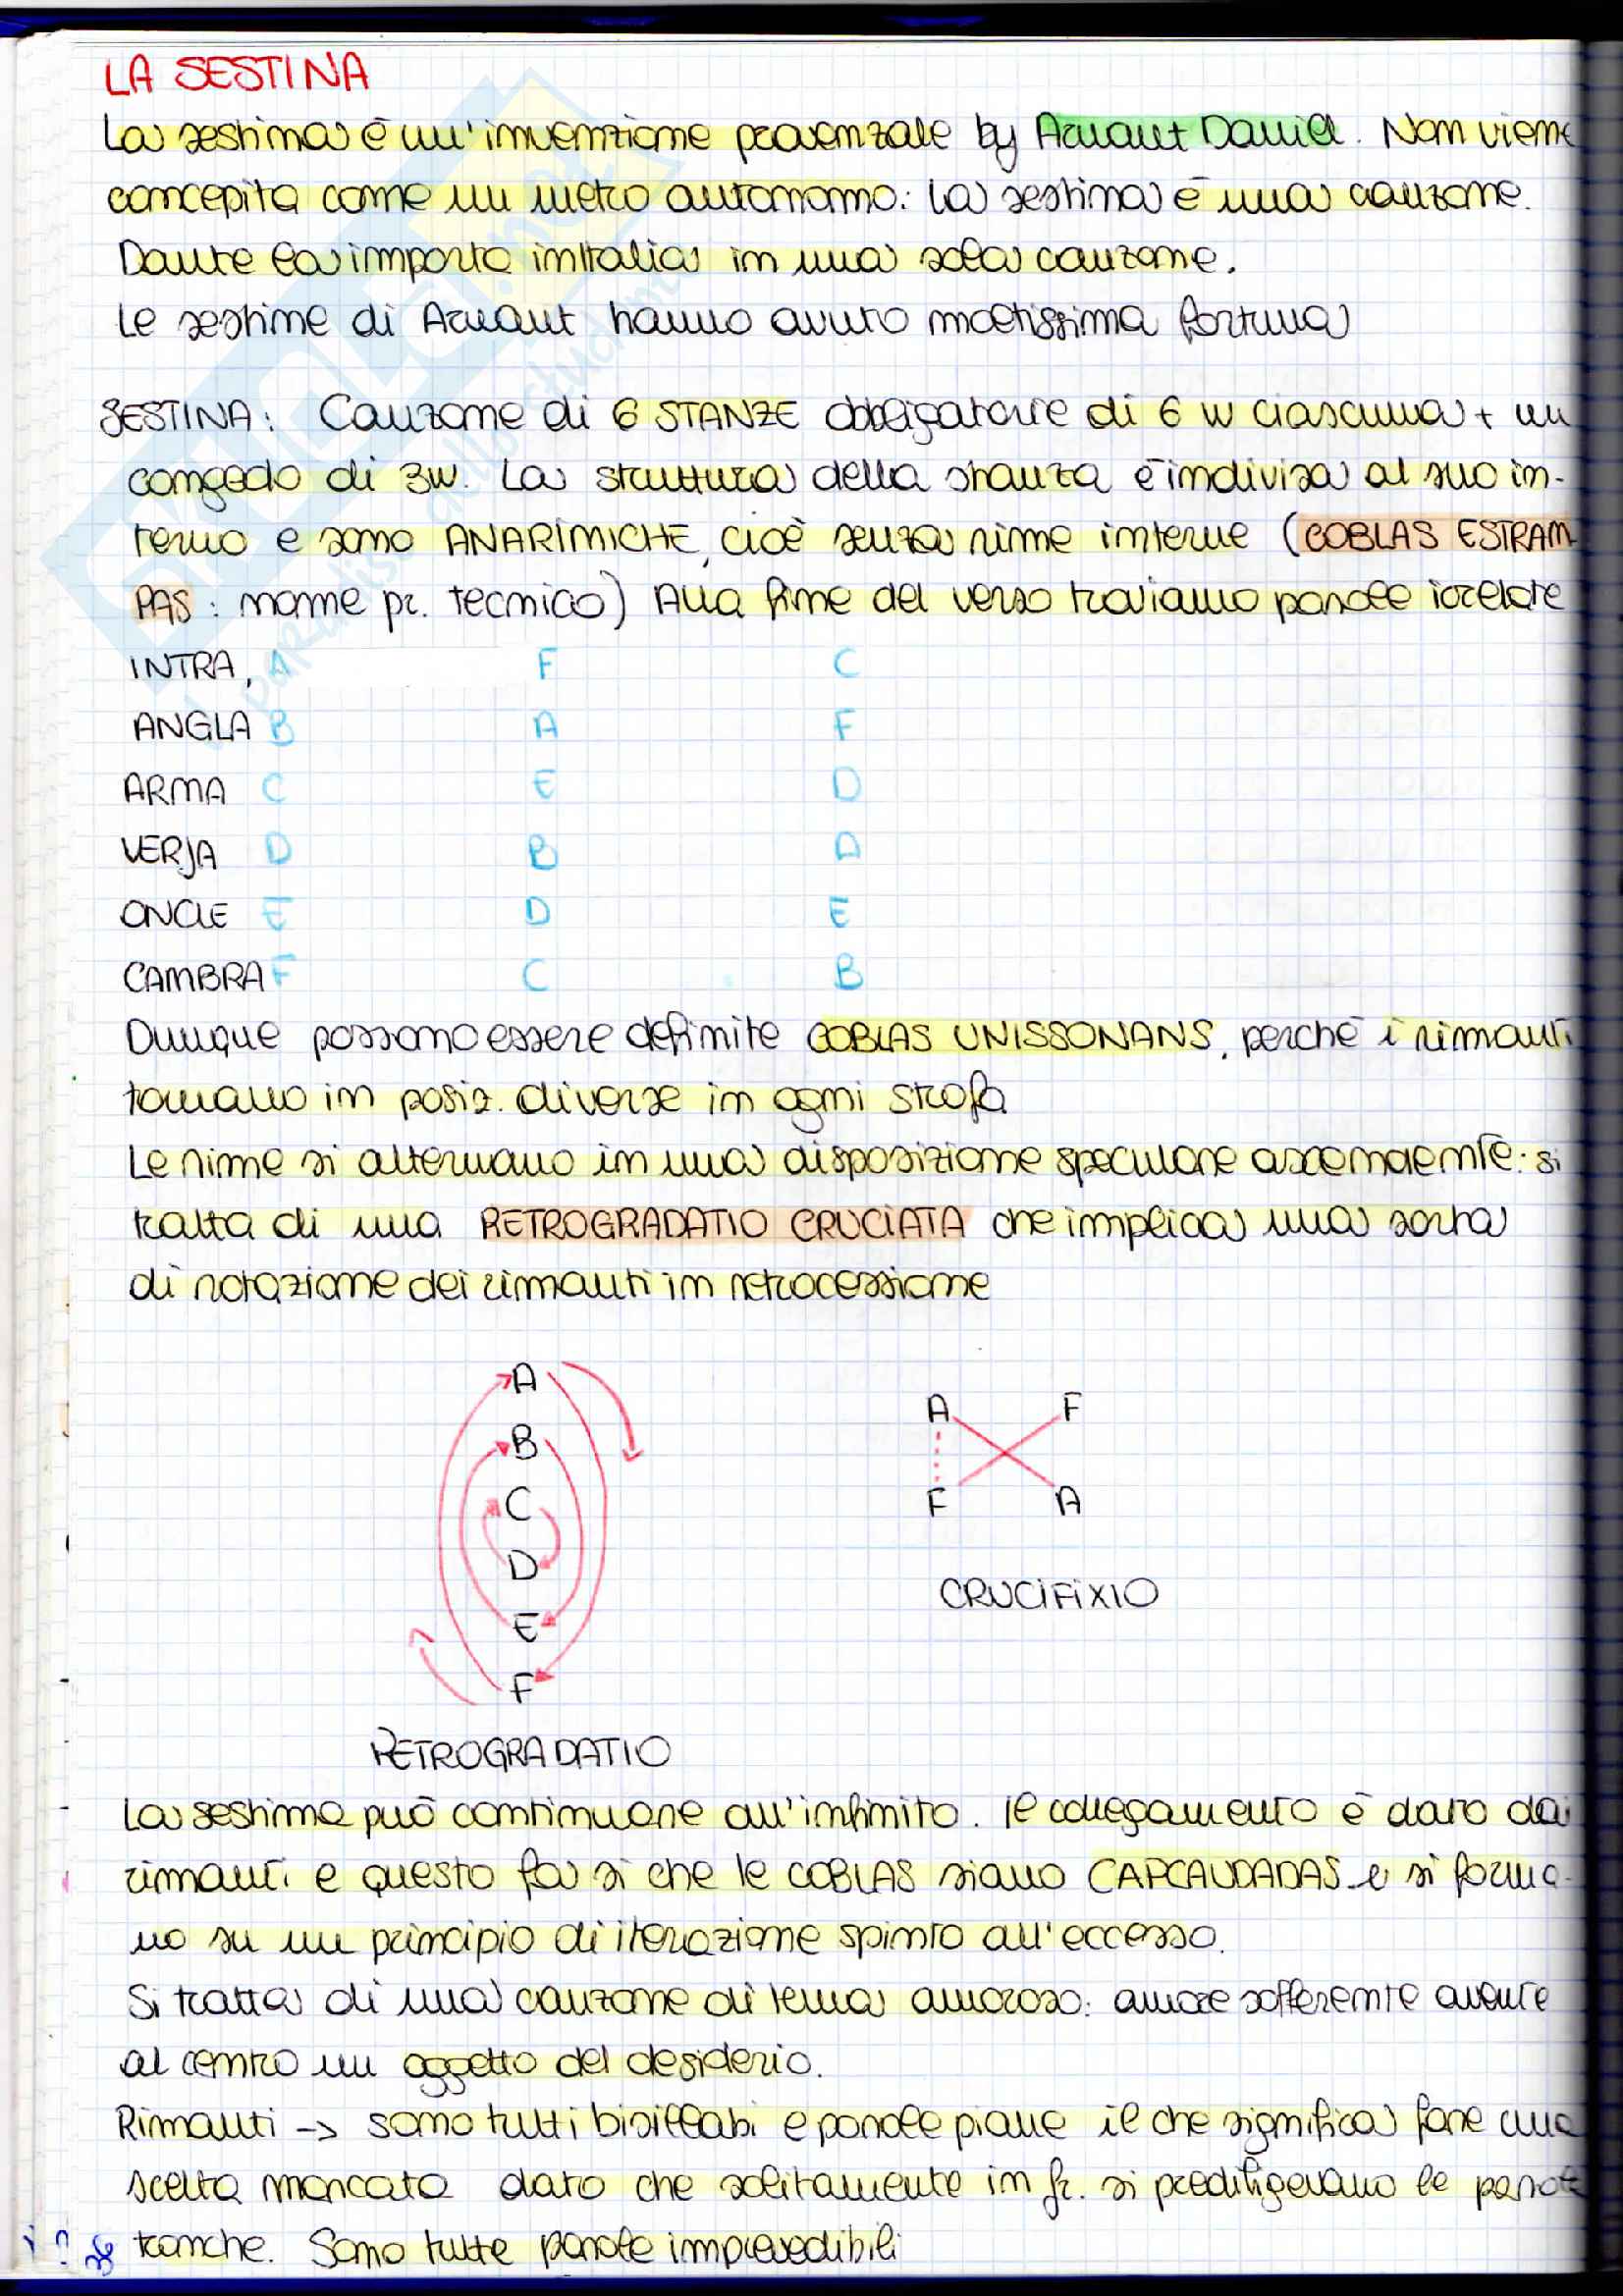 LA SESTINA
La sestina è un'invenzione provenzale by Arnaut Daniel. Non viene
concepita come un metro autonomo: la sestina è una canzone.
Dante la importa in Italia in una sola canzone.
Le sestine di Arnaut hanno avuto moltissima fortuna
SESTINA: Canzone di 6 STANZE obbligatorie di 6 vv ciascuna + un
congedo di 3vv. La struttura della stanza è indivisa al suo in-
terno e sono ANARIMICHE, cioè senza rime interne (COBLAS ESTRAM
PAS: nome pr. tecnico) Alla fine del verso troviamo parole irrelate
INTRA, A F C
ANGLA B A F
ARMA C E D
VERJA D B A
ONCLE E D E
CAMBRA F C B
Dunque possono essere definite COBLAS UNISSONANS, perché i rimanti
tornano in posiz. diverse in ogni strofa
Le rime si alternano in una disposizione speculare ascendente: si
tratta di una RETROGRADATIO CRUCIATA che implica una sorta
di rotazione dei rimanti in retrocessione
A
B
C
D
E
F
RETROGRADATIO
A F
F A
CRUCIFIXIO
La sestina può continuare all'infinito. Il collegamento è dato dai
rimanti e questo fa sì che le COBLAS siano CAPCAUDADAS e si forma-
no su un principio di iterazione spinto all'eccesso.
Si tratta di una canzone di tema amoroso: amore sofferente avente
al centro un oggetto del desiderio.
Rimanti -> sono tutti bisillabi e parole piane il che significa fare una
scelta marcata dato che solitamente in fr. si prediligevano le parole
tronche. Sono tutte parole imprevedibili